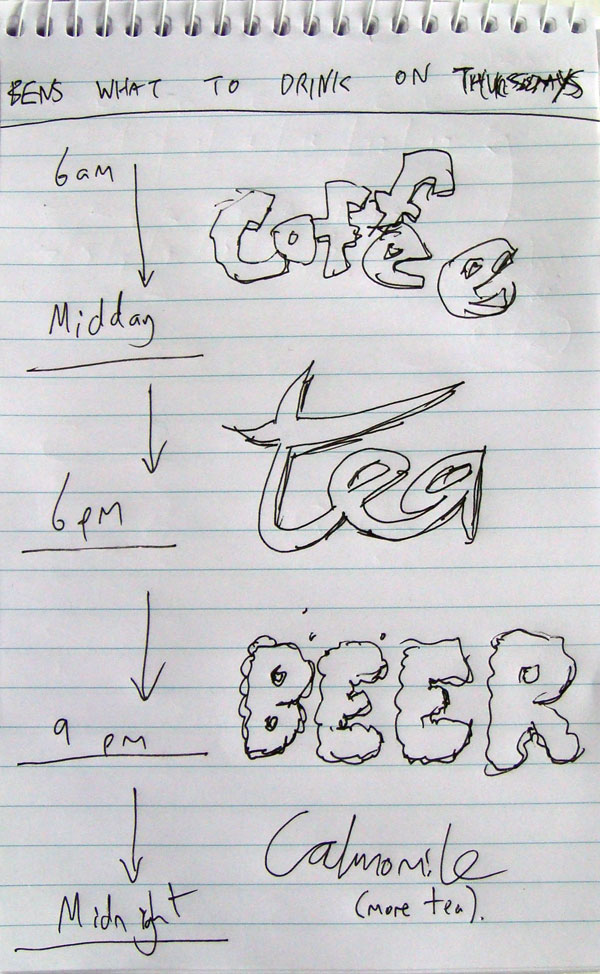 BENS WHAT TO DRINK ON THURSDAYS
6am
Coffee
Midday
tea
6pm
BEER
9 pm
Calmomile
(more tea).
Midnight